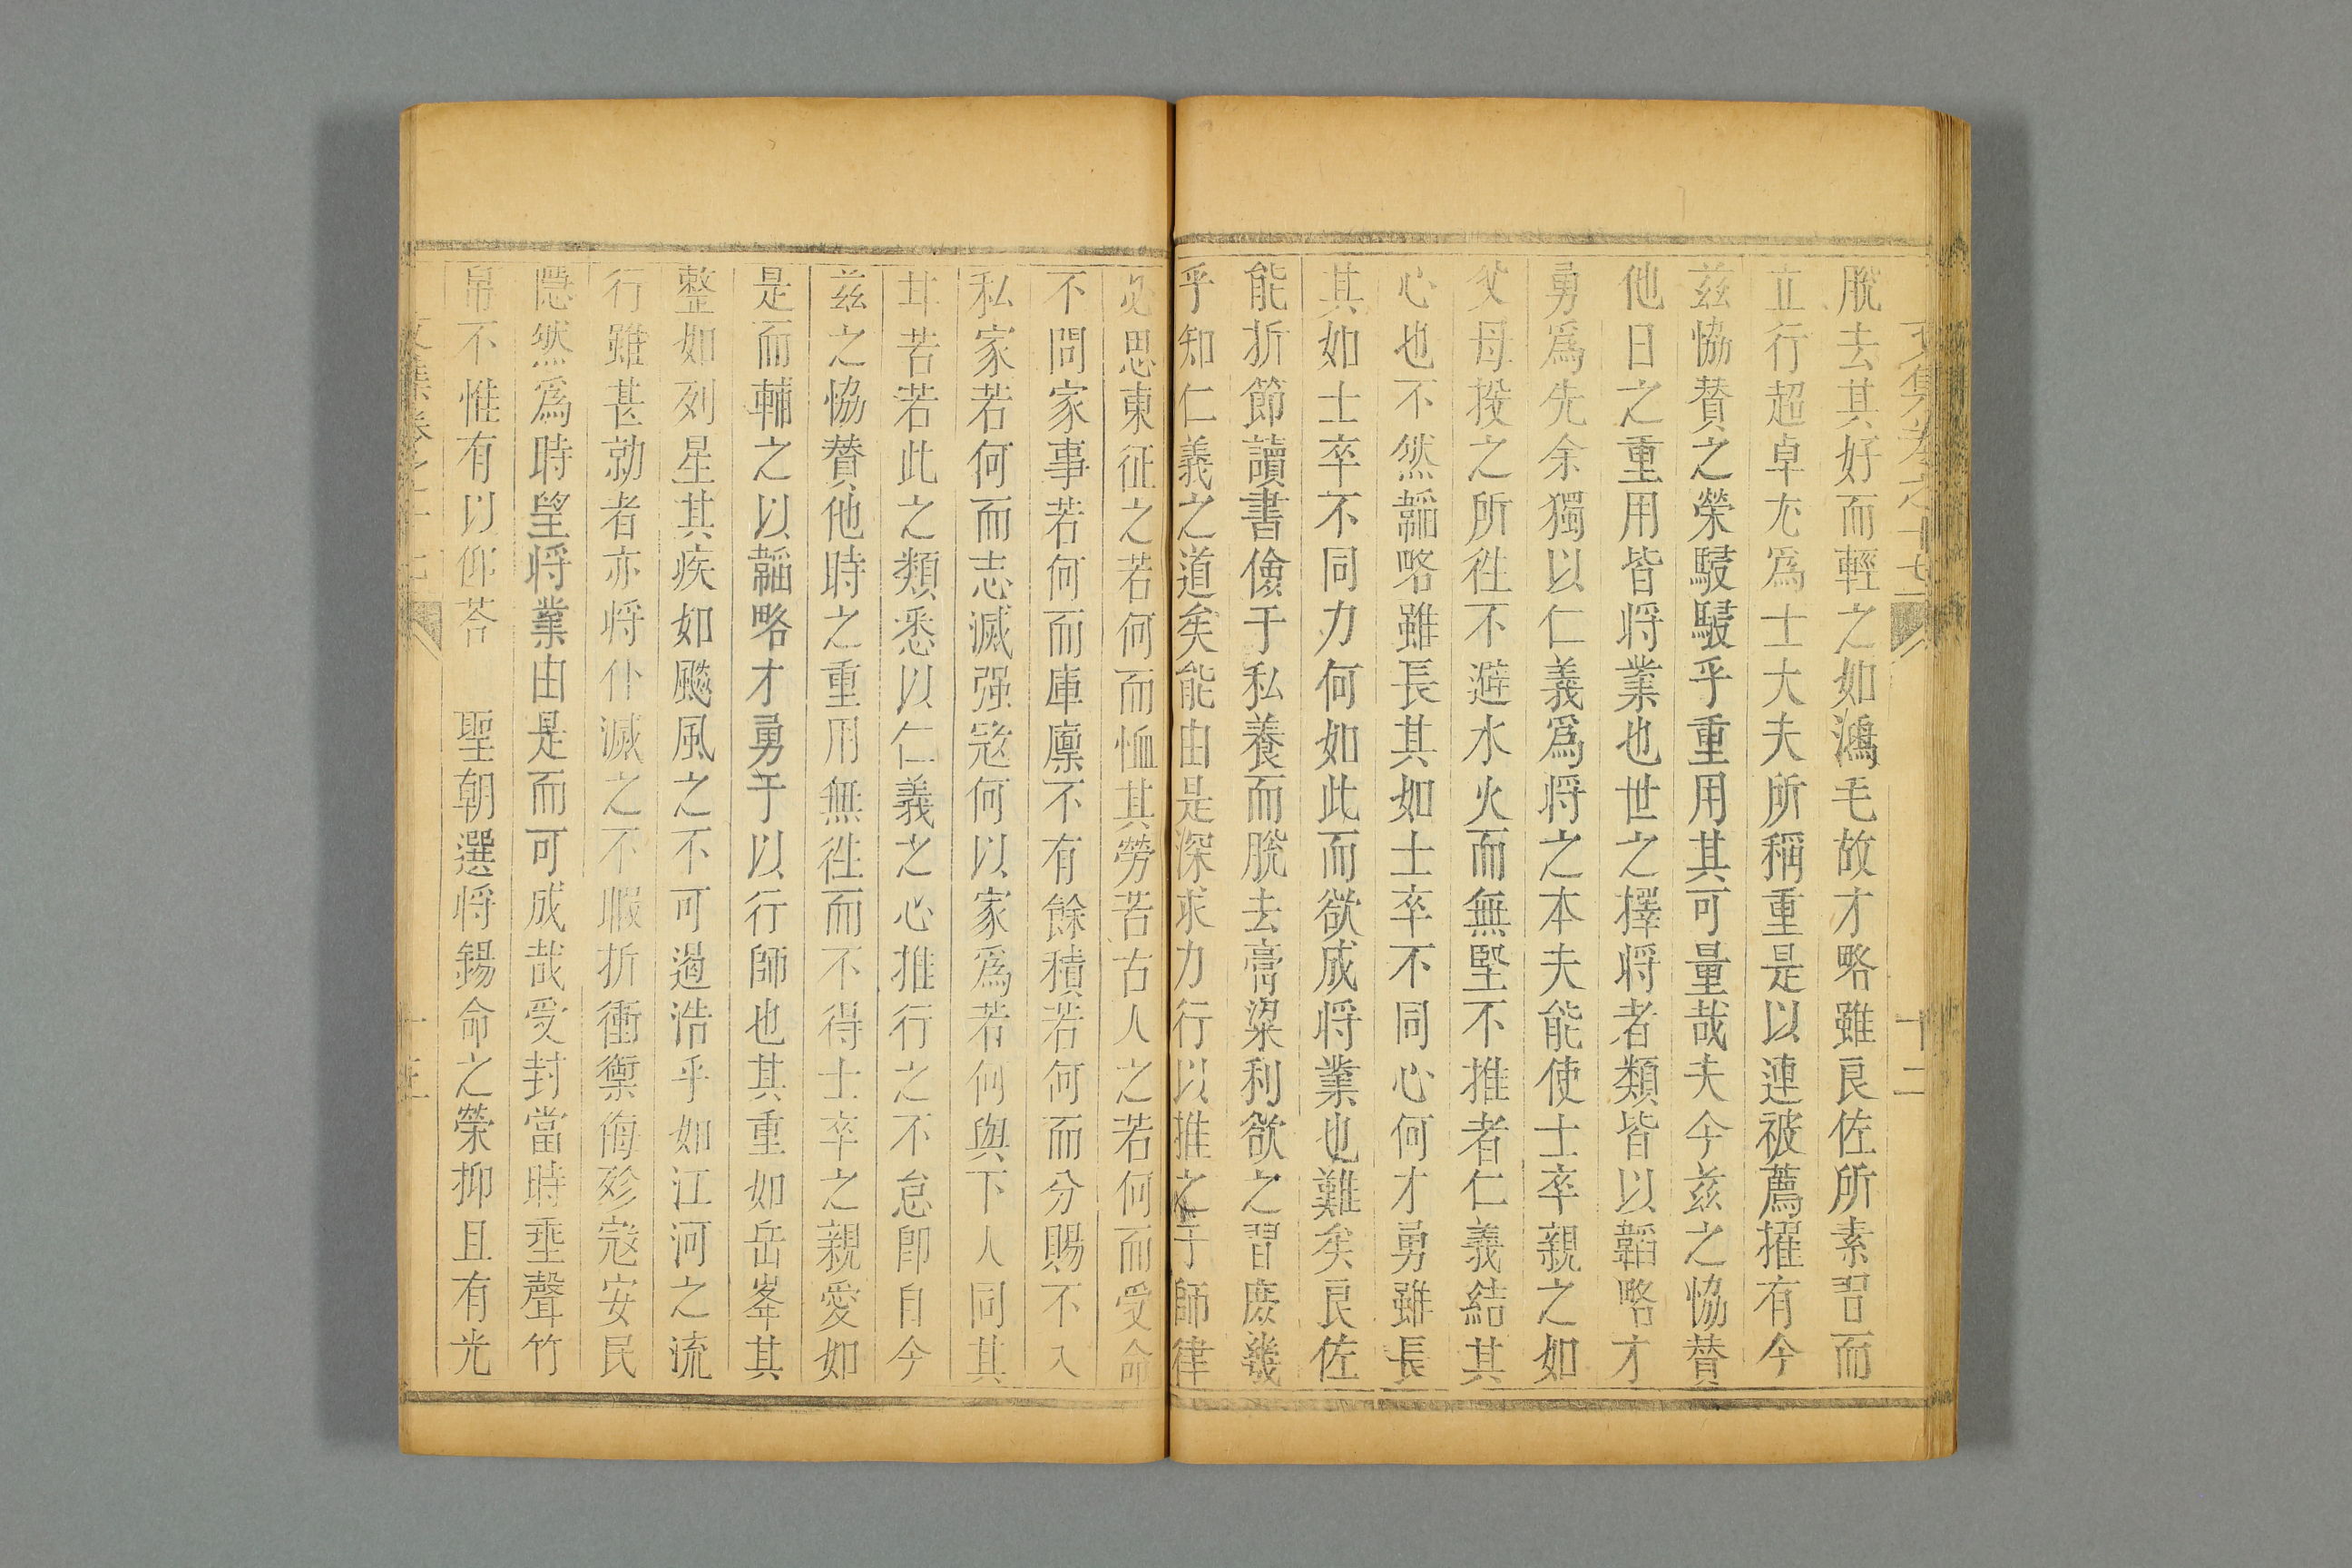 文集卷之十七
十二
脫去其好而輕之如鴻毛故才略雖良佐所素習而
立行超卓尤爲士大夫所稱重是以連被薦擢有今
茲恊賛之榮駸駸乎重用其可量哉夫今茲之恊賛
他日之重用皆將業也世之擇將者類皆以韜略才
勇爲先余獨以仁義爲將之本夫能使士卒親之如
父母投之所徃不避水火而無堅不推者仁義結其
心也不然韜略雖長其如士卒不同心何才勇雖長
其如士卒不同力何如此而欲成將業也難矣良佐
能折節讀書儉于私養而脫去膏粱利欲之習庶幾
乎知仁義之道矣能由是深求力行以推之于師律
必思東征之若何而恤其勞苦古人之若何而受命
不問家事若何而庫廪不有餘積若何而分賜不入
私家若何而志滅强宼何以家爲若何與下人同其
甘苦若此之類悉以仁義之心推行之不怠卽自今
茲之恊賛他時之重用無徃而不得士卒之親愛如
是而輔之以韜略才勇于以行師也其重如岳峯其
整如列星其疾如飈風之不可遏浩乎如江河之流
行雖甚勍者亦將仆滅之不暇折衝禦侮殄宼安民
隱然爲時望將業由是而可成哉受封當時垂聲竹
帛不惟有以仰荅　聖朝選將錫命之榮抑且有光
文集卷之十七
十三